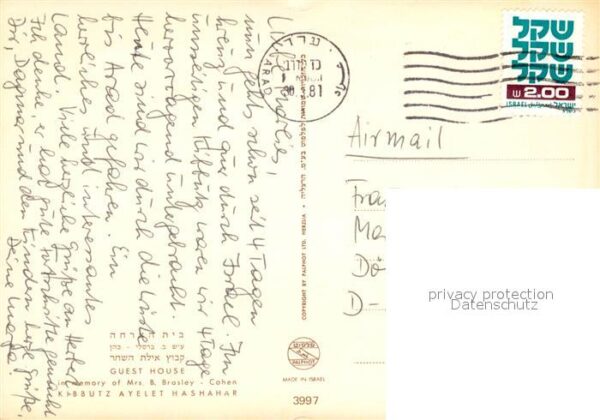 nun geht's schon seit 4 Tagen
kreuz und quer durch Israel. Im
Kibbutz waren wir 4 Tage
hervorragend untergebracht.
Heute sind wir durch die Wüste
bis Arad gefahren. Ein
herrliches und interessantes
Land. Viele herzliche Grüße an Herbert
Ich denke, er hat gute Fortschritte gemacht
Dir, Dagmar und den Kindern liebe Grüße,
Deine
בית הארחה
ע"ש ב. ברסלי - כהן
קבוץ אילת השחר
GUEST HOUSE
in memory of Mrs. B. Brasley - Cohen
KIBBUTZ AYELET HASHAHAR
COPYRIGHT BY PALPHOT LTD. HERZLIA
פלפוט
PALPHOT
MADE IN ISRAEL
3997
ערד
ARAD
81
שקל
שקל
שקל
2.00
ISRAEL ישראל
Airmail
D-
privacy protection
Datenschutz